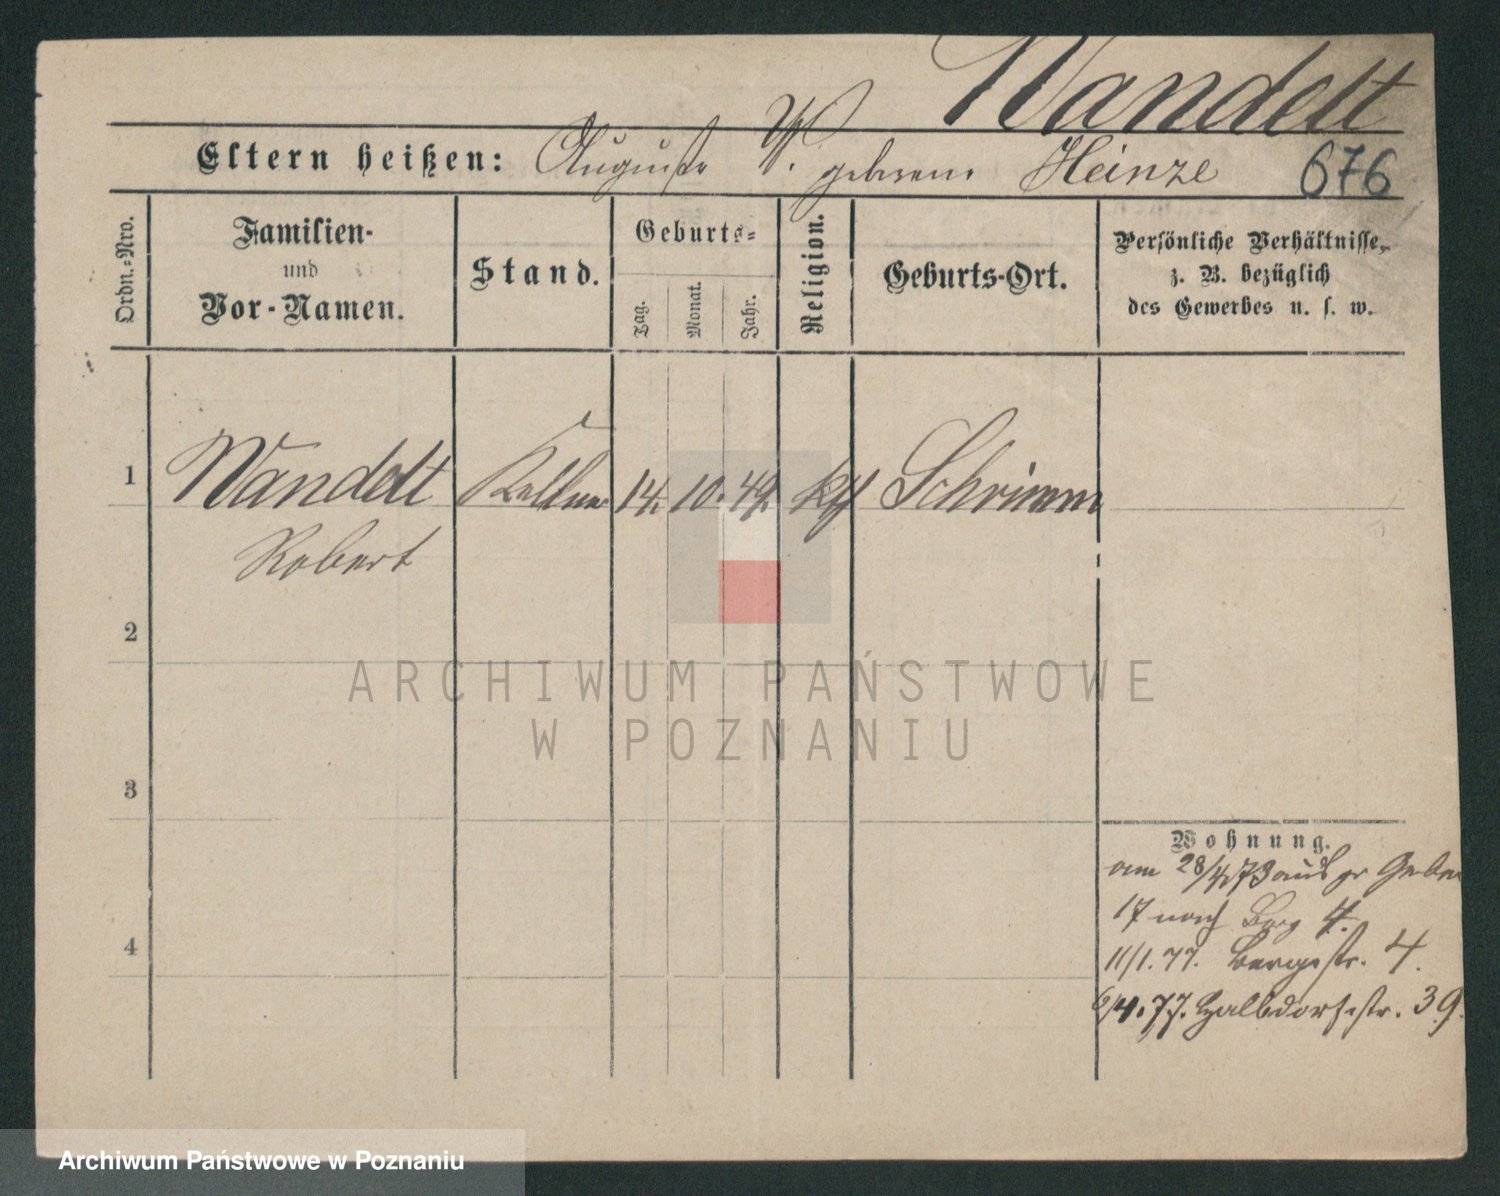 Wandelt
Eltern heißen: Auguste W. geborene Heinze 676
Ordn.-Nro.
Familien-
und
Vor-Namen.
Stand.
Geburts-
Tag.
Monat.
Jahr.
Religion.
Geburts-Ort.
Persönliche Verhältnisse,
z. B. bezüglich
des Gewerbes u. s. w.
1 Wandelt Kellner 14. 10. 49. Schrimm
Robert
2
3
4
ARCHIWUM PAŃSTWOWE
W POZNANIU
Wohnung.
am 28/4 73 aus gr Gerber
17 nach Berg 4.
11/1. 77. Bergstr. 4.
6/4. 77. Halbdorfstr. 39.
Archiwum Państwowe w Poznaniu